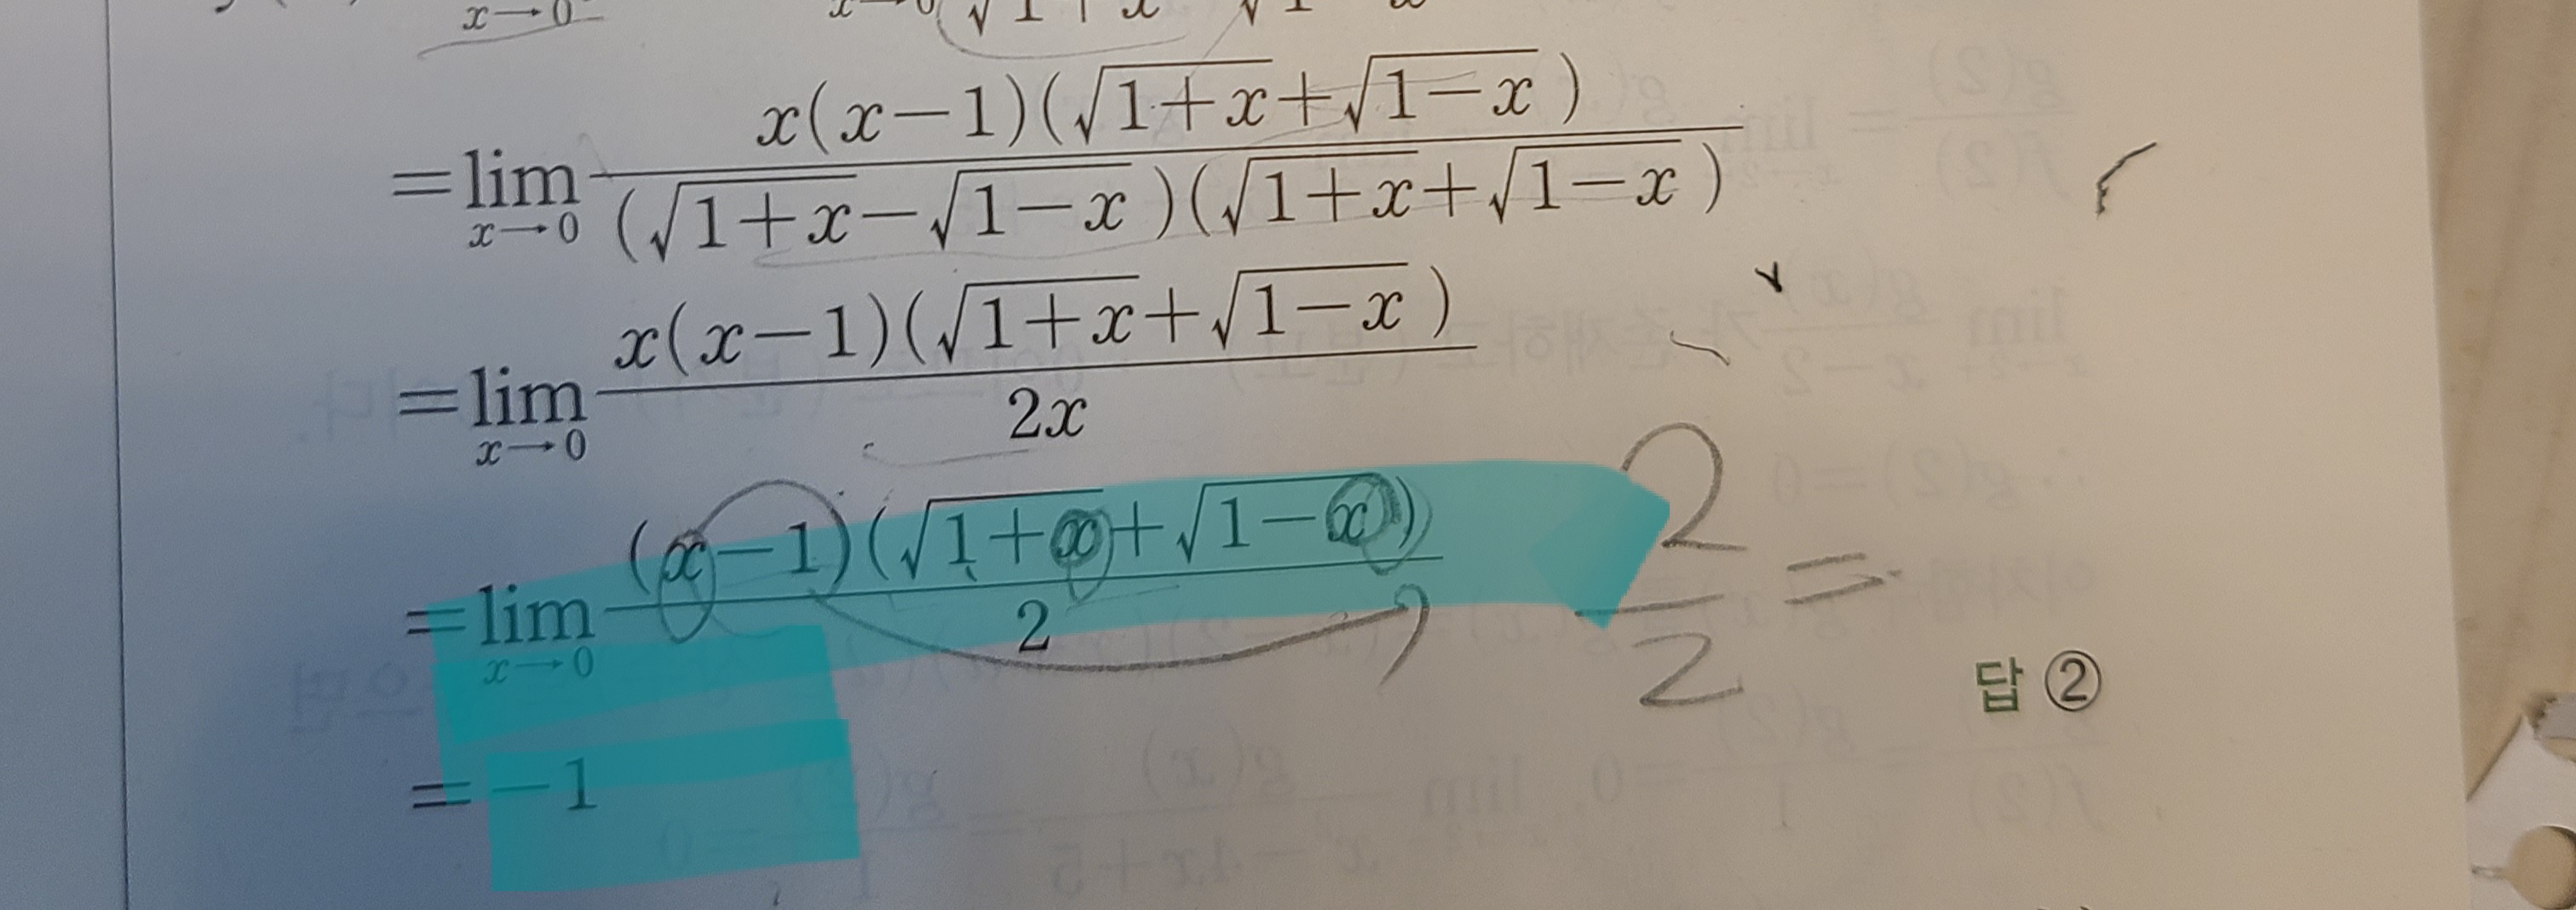 x→0
=lim_{x→0} \frac{x(x−1)(√(1+x)+√(1−x))}{(√(1+x)−√(1−x))(√(1+x)+√(1−x))}
=lim_{x→0} \frac{x(x−1)(√(1+x)+√(1−x))}{2x}
=lim_{x→0} \frac{(x−1)(√(1+x)+√(1−x))}{2} \frac{2}{2} =
답 ②
=−1